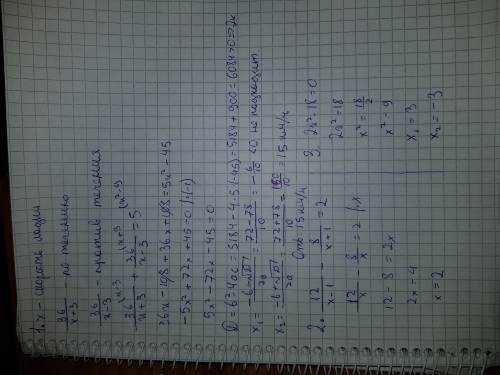 1. x - скорость лодки
36/x+3 по течению
36/x-3 - против течения
36/x+3 + 36/x-3 = 5
36x - 108 + 36x + 108 = 5x² - 45
-5x² + 72x + 45 = 0 |·(-1)
5x² - 72x - 45 = 0
D = 5184 - 4·5·(-45) = 5184 + 900 = 6084 > 0 => 2x
x₁ = = 72-78/10 = -6/10 < 0 не подходит
x₂ = -b+√D/2a = 72+78/10 = 150/10 = 15 км/ч
Отв: 15 км/ч
2. 12/x-1 - 8/x-1 = 2
12/x - 8/x = 2 |·x
12 - 8 = 2x
2x = 4
x = 2
3. 2x² - 18 = 0
2x² = 18
x² = 18/2
x² - 9
x₁ = 3
x₂ = -3